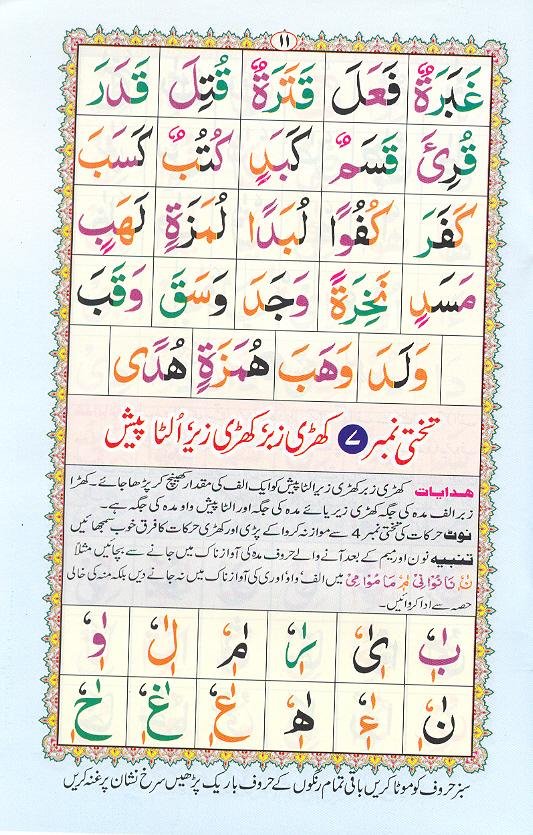 ۱۱
غَبَرَةٌ فَعَلَ قَتَرَةٌ قُتِلَ قَدَرَ
قُرِئَ قَسَمٌ كَبَدٍ كُتُبٌ كَسَبَ
كَفَرَ كُفُوًا لُبَدًا لُمَزَةٍ لَهَبٍ
مَسَدٍ نَخِرَةً وَجَدَ وَسَقَ وَقَبَ
وَلَدَ وَهَبَ هُمَزَةٍ هُدًى
تختی نمبر ۷ کھڑی زبرَ کھڑی زیرَ اُلٹا پیش
ھدایات کھڑی زبر کھڑی زیر الٹا پیش کو ایک الف کی مقدار کھینچ کر پڑھا جائے۔ کھڑا
زبر الف مدہ کی جگہ کھڑی زیر یائے مدہ کی جگہ اور الٹا پیش واؤ مدہ کی جگہ ہے۔
نوٹ حرکات کی تختی نمبر 4 سے موازنہ کروا کے پڑی اور کھڑی حرکات کا فرق خوب سمجھائیں
تنبیہ نون اور میم کے بعد آنے والے حروف مدہ کی آواز ناک میں جانے سے بچائیں مثلاً
نَا نُوْا نِیْ مَا مُوْا مِیْ میں الف واؤ اوری کی آواز ناک میں نہ جانے دیں بلکہ منہ کی خالی
حصہ سے ادا کروائیں۔
بٰ یٰ رٰ مٰ لٰ وٰ
نٰ ءٰ ھٰ عٰ غٰ حٰ
سبز حروف کو موٹا کریں باقی تمام رنگوں کے حروف باریک پڑھیں سرخ نشان پر غنہ کریں